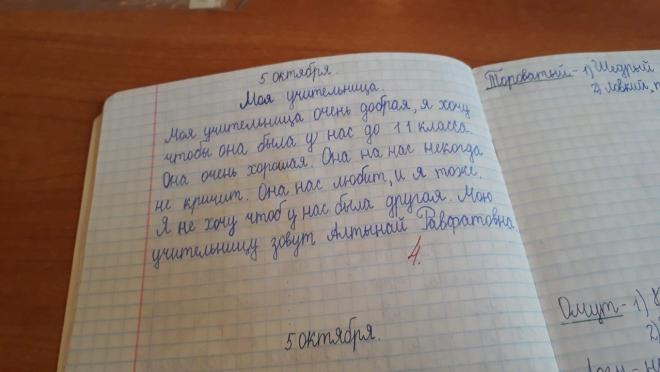 5 октября.
Моя учительница.
Моя учительница очень добрая, я хочу
чтобы она была у нас до 11 класса.
Она очень хорошая. Она на нас некогда
не кричит. Она нас любит, и я тоже.
Я не хочу чтоб у нас была другая. Мою
учительницу зовут Алтынай Равфатовна
4.
5 октября.
Тороватый - 1) Щедрый
2) Ловкий,
Омут - 1)
2)